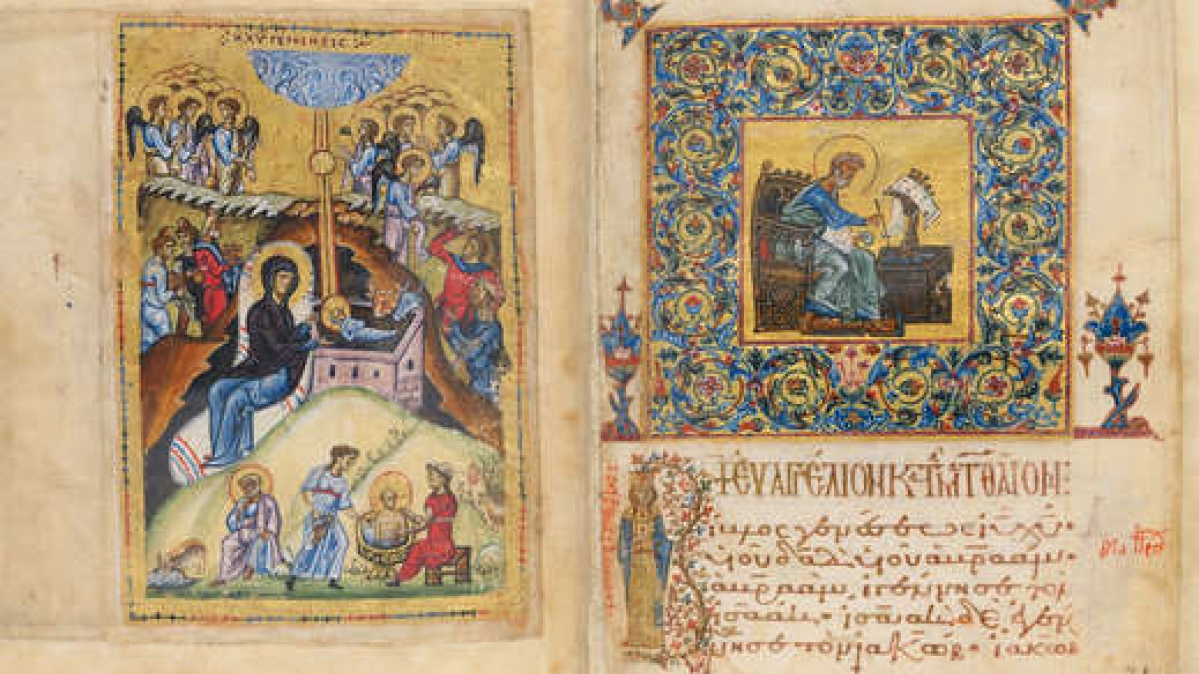 ΧΥ ΓΕΝΝΗΣΙΣ
+ ΕΥΑΓΓΕΛΙΟΝ ΚΑΤΑ ΜΑΤΘΑΙΟΝ:
Βίβλος γενέσεως ἰυ χυ
υἱοῦ δαδ υἱοῦ ἀβραάμ·
ἀβραὰμ ἐγέννησε τὸν
ἰσαάκ· ἰσαὰκ δὲ ἐγέν
νησε τὸν ἰακώβ· ἰακὼβ